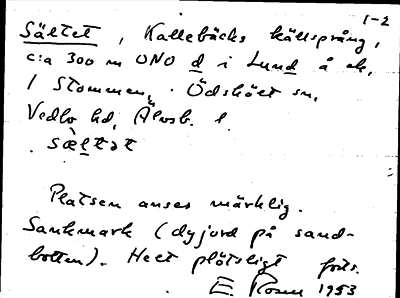 1-2
Sältet, Kallebäcks källsprång,
c:a 300 m ONO d i Lund å ek.
1 Stommen, Ödsköet sn,
Vedbo hd, Älvsb. l.
sæ̀ltət
Platsen anses märklig.
Sankmark (dyjord på sand-
botten). Helt plötsligt forts.
E. Rosen 1953